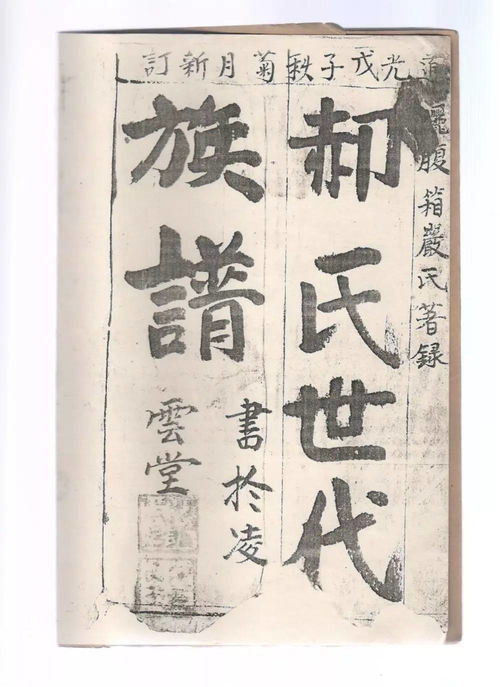 道光戊子秋菊月新訂
腹箱嚴氏著録
郝氏世代
族譜
書於凌
雲堂